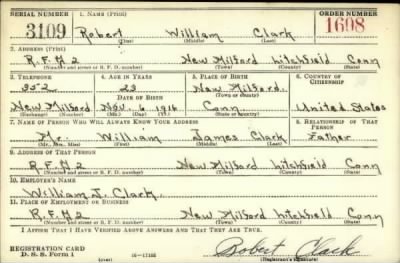 SERIAL NUMBER 1. NAME (Print) ORDER NUMBER
3109 Robert William Clark 1608
(First) (Middle) (Last)
2. ADDRESS (Print)
R.F.#2 New Milford Litchfield Conn
(Number and street or R. F. D. number) (Town) (County) (State)
3. TELEPHONE 4. AGE IN YEARS 5. PLACE OF BIRTH 6. COUNTRY OF CITIZENSHIP
352 23 New Milford.
DATE OF BIRTH (Town or county)
New Milford Nov. 6, 1916 Conn United States
(Exchange) (Number) (Mo.) (Day) (Yr.) (State or country)
7. NAME OF PERSON WHO WILL ALWAYS KNOW YOUR ADDRESS 8. RELATIONSHIP OF THAT PERSON
Mr. William James Clark Father
(Mr., Mrs., Miss) (First) (Middle) (Last)
9. ADDRESS OF THAT PERSON
R.F.#2 New Milford Litchfield Conn
(Number and street or R. F. D. number) (Town) (County) (State)
10. EMPLOYER'S NAME
William J. Clark
11. PLACE OF EMPLOYMENT OR BUSINESS
R.F.#2 New Milford Litchfield Conn
(Number and street or R. F. D. number) (Town) (County) (State)
I AFFIRM THAT I HAVE VERIFIED ABOVE ANSWERS AND THAT THEY ARE TRUE.
REGISTRATION CARD
D. S. S. Form 1 (over) Robert Clark
(Registrant's signature)